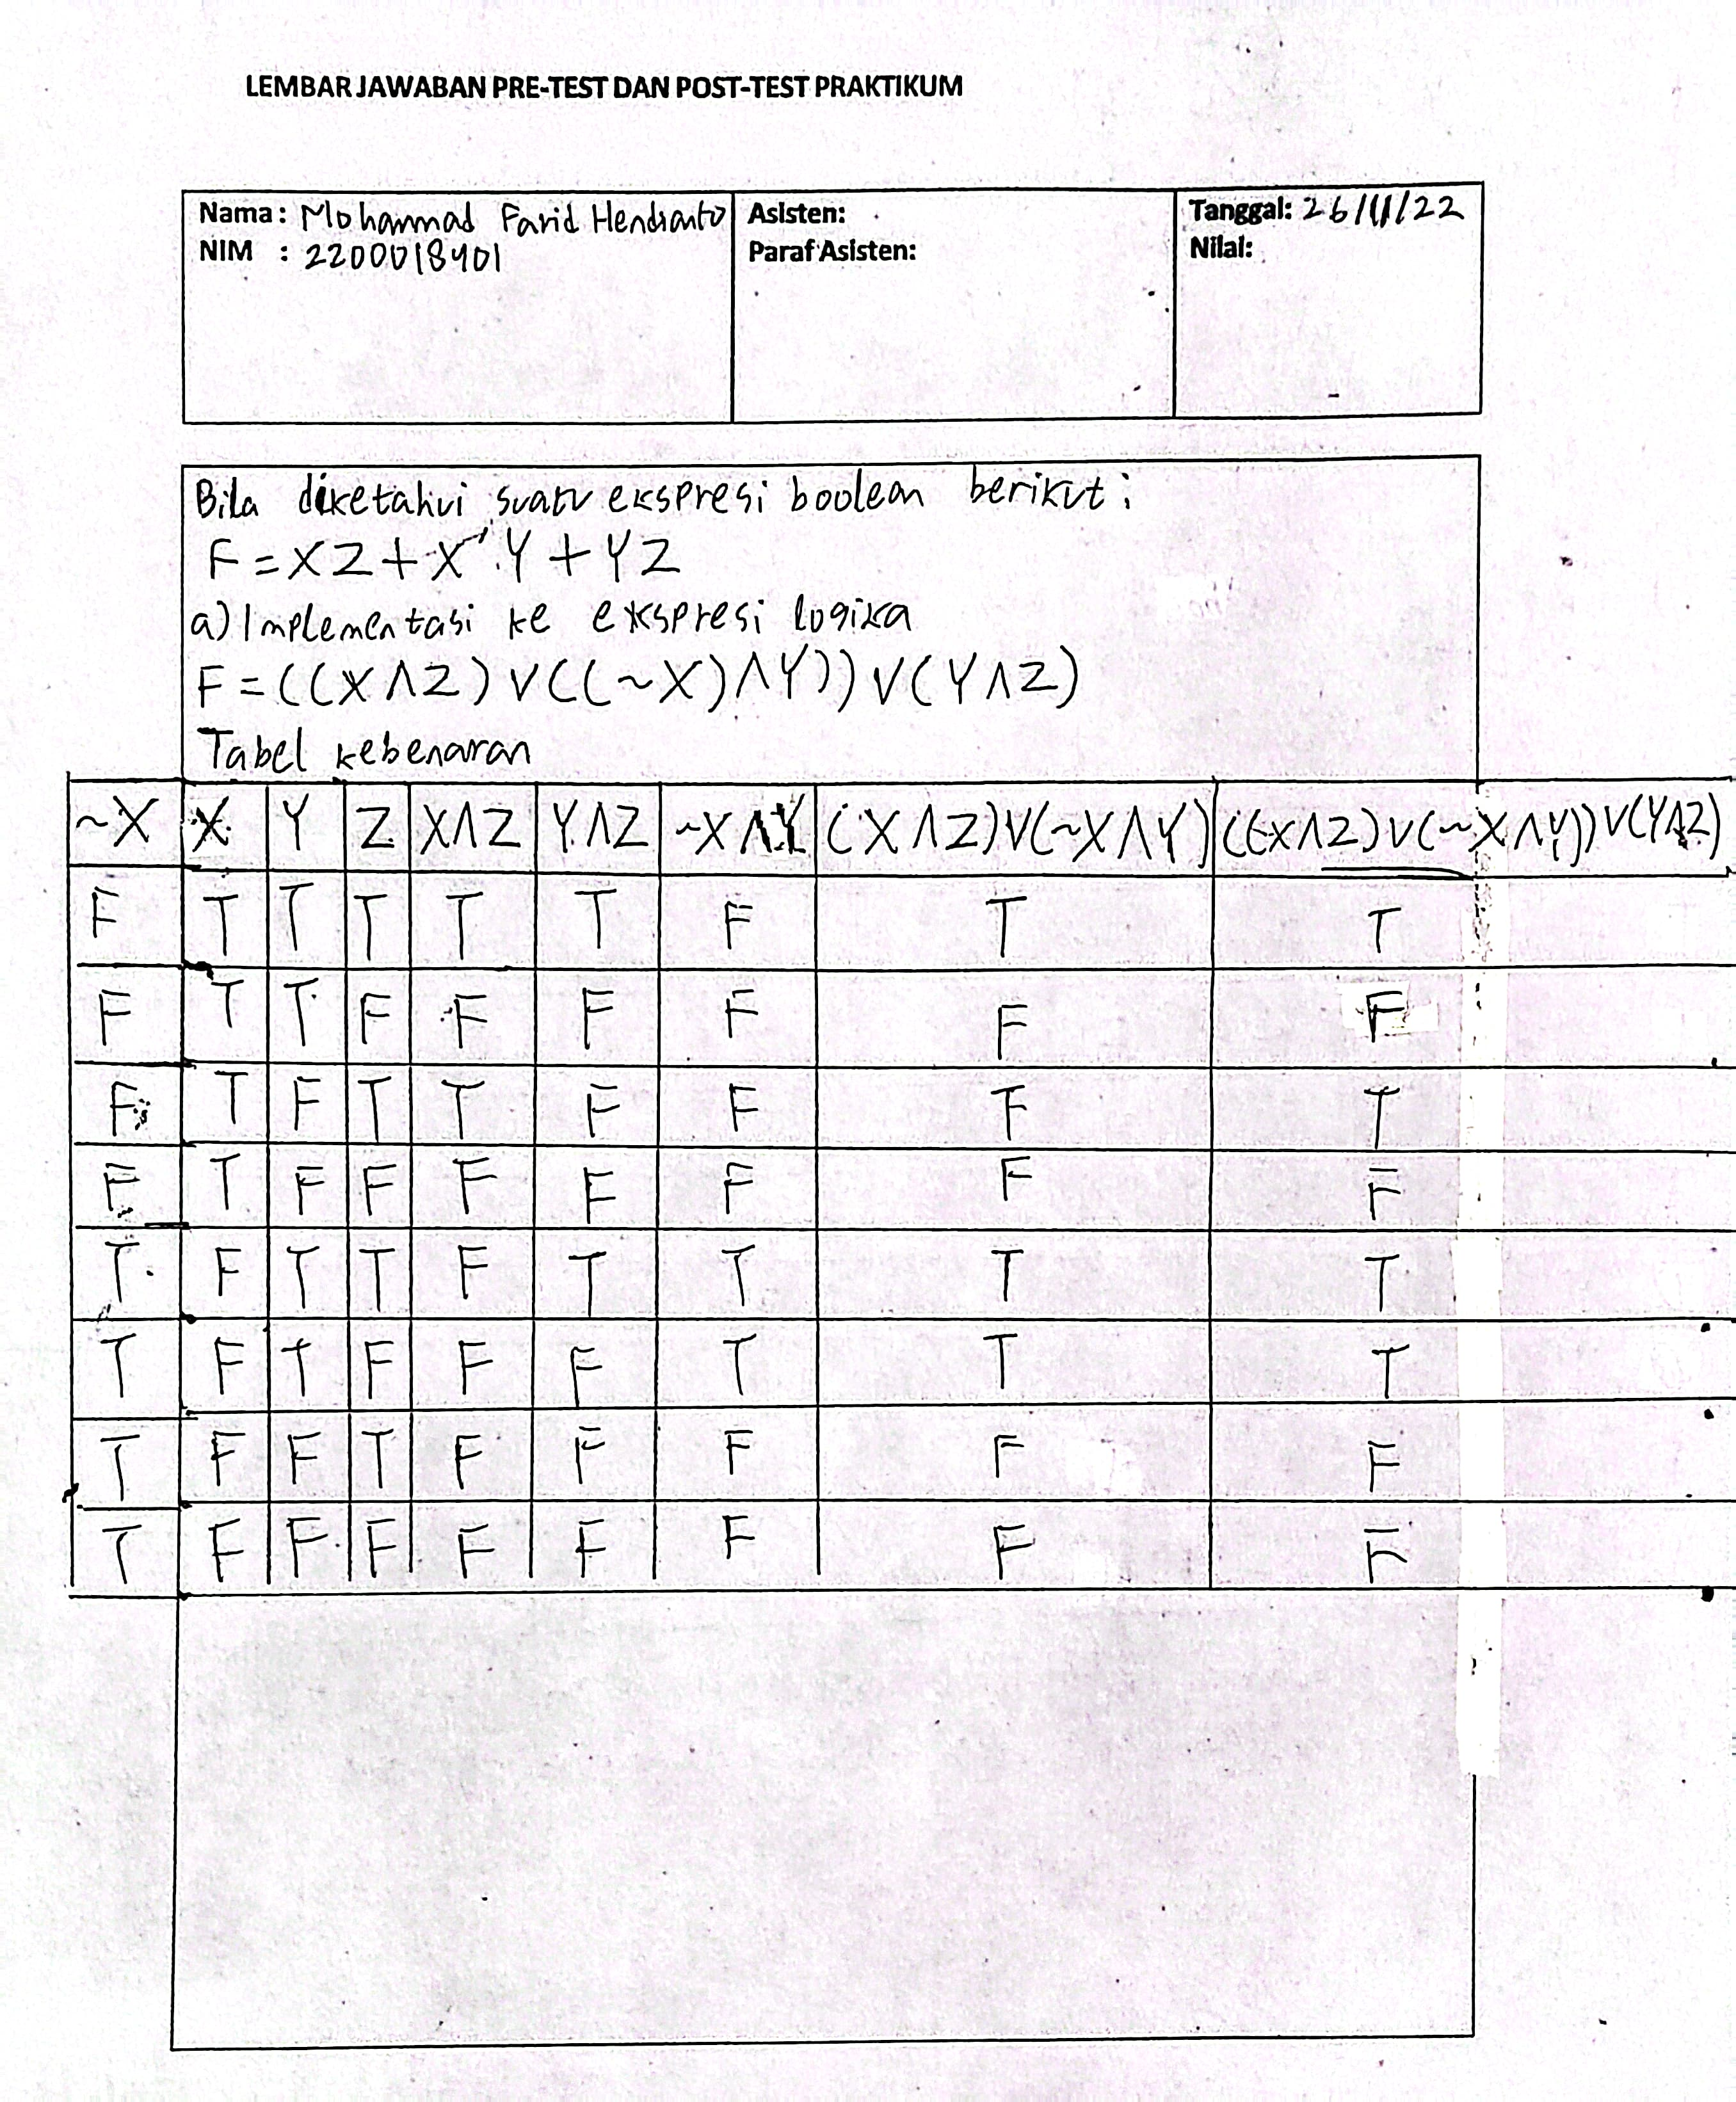 LEMBAR JAWABAN PRE-TEST DAN POST-TEST PRAKTIKUM
Nama: Mohammad Farid Hendianto
NIM : 2200018401
Asisten:
Paraf Asisten:
Tanggal: 26/11/22
Nilai:
Bila diketahui suatu ekspresi boolean berikut:
F=XZ+X'Y+YZ
a) Implementasi ke ekspresi logika
F=((X∧Z)∨((~X)∧Y))∨(Y∧Z)
Tabel kebenaran
~X X Y Z X∧Z Y∧Z ~X∧Y (X∧Z)∨(~X∧Y) ((X∧Z)∨(~X∧Y))∨(Y∧Z)
F T T T T T F T T
F T T F F F F F F
F T F T T F F T T
F T F F F F F F F
T F T T F T T T T
T F T F F F T T T
T F F T F F F F F
T F F F F F F F F